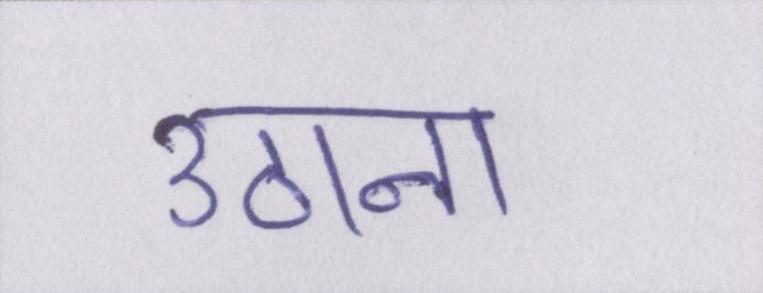 उठाना